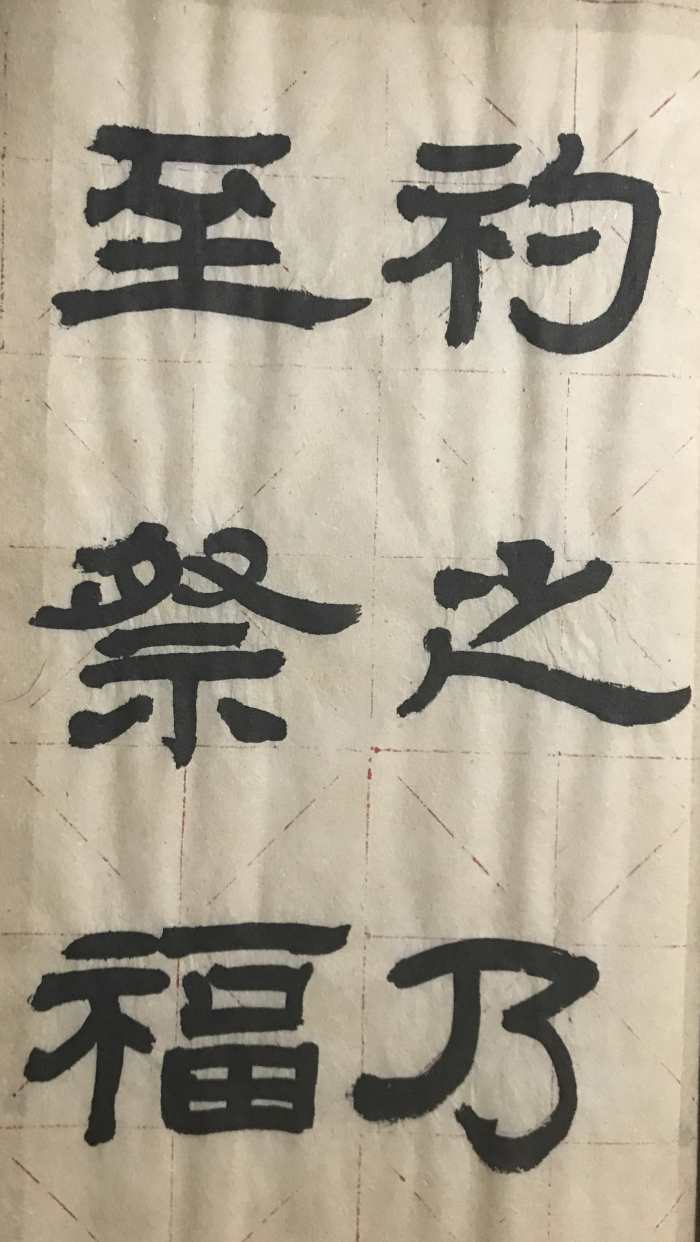 礿之乃
至祭福